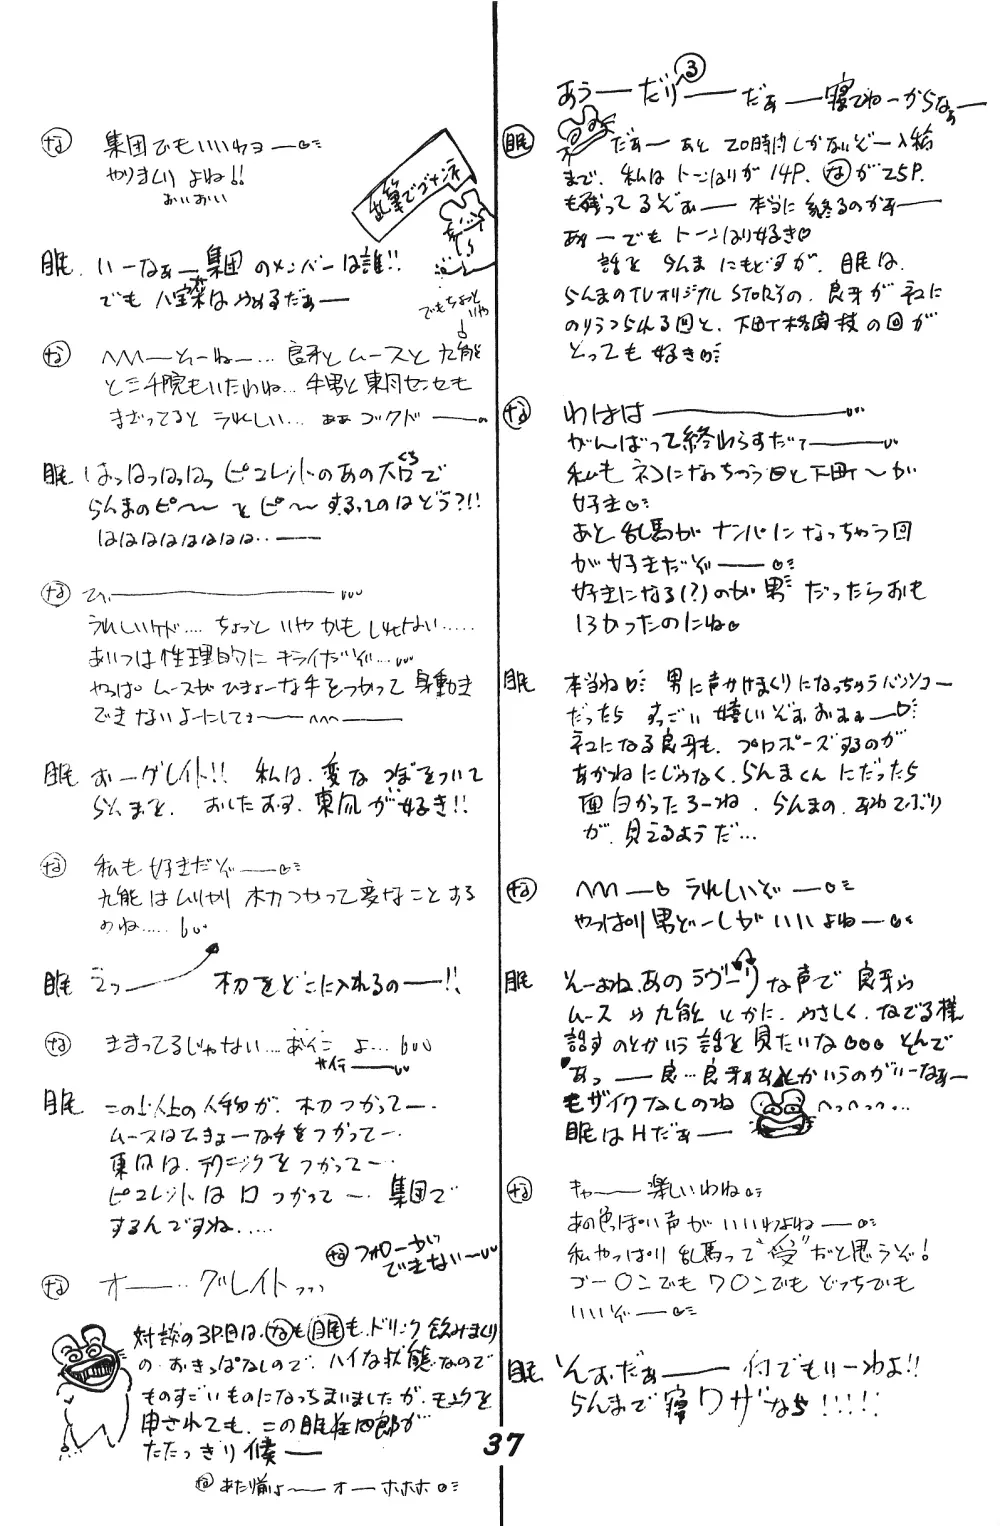 あうーだりーだぁー寝てねーからなぁー
③
眠 だぁーあと20時間しかないぞー入稿
まで、私はトーンはりが14P、なが25P.
も残ってるぞぉー本当に終るのかぁー
あぁーでもトーンはり好き♡
話をらんまにもどすが、眠は、
らんまのTVオリジナルSTORYの、良牙がネコに
のりうつられる回と、下町格闘技の回が
とっても好き♡
な わははー
がんばって終わらすだァー
私もネコになっちゃう回と下町〜が
好き♡
あと乱馬がナンパになっちゃう回
が好きだぞー♡
好きになる(?)のが男だったらおも
しろかったのにね♡
眠 本当ね♡男に声かけまくりになっちゃうバンソコー
だったらすっごい嬉しいぞぉおぉぉー♡
ネコになる良牙も、プロポーズするのが
あかねにじゃなく、らんまくんにだったら
面白かったろーね、らんまの、あわてぶり
が、見えるようだ…
な へへへー♡うれしいぞー♡
やっぱり男どーしがいいよねー♡
眠 そーよね、あのラヴリーな声で良牙や
ムースや九能とかに、やさしく、なでる様
話すのとかいう話を見たいな○○○そんで
"あっー良…良牙ぁぁとかいうのがいーなぁー
モザイクなしのね へっへっへっ…
眠はHだぁー
な キャー楽しいわね♡
あの色っぽい声がいいわよねー♡
私やっぱり乱馬って"受"だと思うぞ!
ゴー○ンでもワ○ンでもどっちでも
いいぞー♡
眠 そんぉ、だぁー何でもいーわよ!!
らんまで寝ワザなら!!!!!
な 集団でもいいわョー♡
やりましりよね!!
おいおい
乱筆でゴメンネ
眠 いーなぁー集団のメンバーは誰!!
でも八宝菜はやめるだぁー
でもちょっといや
な へへへーそーねー…良牙とムースと九能
と三千院もいたわね…牛男と東風センセも
まざってるとうれしい…ああゴックドー
眠 はっはっはっはっピコレットのあの大口で
らんまのピ〜〜をピ〜〜するってのはどう?!!
はははははははは…ー
な ひぃー
うれしいけド….ちょっといやかもしれない…..
あいつは性理的にキライだぞ…
やっぱムースがひきょーな手をつかって身動き
できないよーにしてョーへへへー
眠 おーグレイト!!私は、変なつぼをついて
らんまを、おしたおす、東風が好き!!
な 私も好きだぞー♡
九能はムリやり木刀つかって変なことする
のね…..
眠 えっー 木刀をどこに入れるのー!!
な きまってるじゃない…あそこよ…
眠 この以上の人物が、木刀つかってー.
ムースはひきょーな手をつかってー.
東風は、テクニックをつかってー.
ピコレットは口つかってー.集団で
するんですね…..
な フォローが
できないー
な オー…グレイト,,,
対談の3P目は、なも眠も、ドリンク飲みまくり
の、おきっぱなしので、ハイな状態、なので
ものすごいものになっちまいましたが、モンクを
申されても、この眠狂四郎が
たたっきり候ー
な あたり前よーオーホホホ♡
37